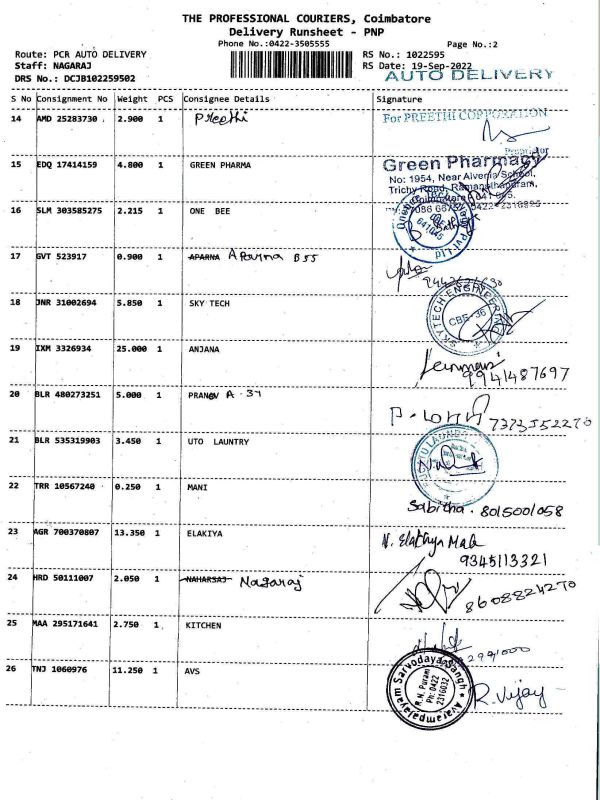 THE PROFESSIONAL COURIERS, Coimbatore
Delivery Runsheet - PNP
Phone No.:0422-3505555
Page No.:2
Route: PCR AUTO DELIVERY
RS No.: 1022595
Staff: NAGARAJ
RS Date: 19-Sep-2022
DRS No.: DCJB102259502
AUTO DELIVERY
S No Consignment No Weight PCS Consignee Details Signature
14 AMD 25283730 2.900 1 Preethi
For PREETHI CORPORATION
Proprietor
15 EDQ 17414159 4.800 1 GREEN PHARMA
Green Pharmacy
No: 1954, Near Alvernia School,
Trichy Road, Ramanathapuram,
16 SLM 303585275 2.215 1 ONE BEE
641045
17 GVT 523917 0.900 1 APARNA Aparna BSS
18 JNR 31002694 5.850 1 SKY TECH
SKYTECH ENGINEERING
CBE-36
19 IXM 3326934 25.000 1 ANJANA
9941487697
20 BLR 480273251 5.000 1 PRANOV A-37
7373552270
21 BLR 535319903 3.450 1 UTO LAUNTRY
22 TRR 10567240 0.250 1 MANI
Sabitha. 8015001058
23 AGR 700370807 13.350 1 ELAKIYA
9345113321
24 HRD 50111007 2.050 1 NAHARSAJ Nagaraj
8608824270
25 MAA 295171641 2.750 1 KITCHEN
26 TNJ 1060976 11.250 1 AVS
Sarvodaya Sangh
R.N. Puram
Ph: 0422
2316032
R. Vijay